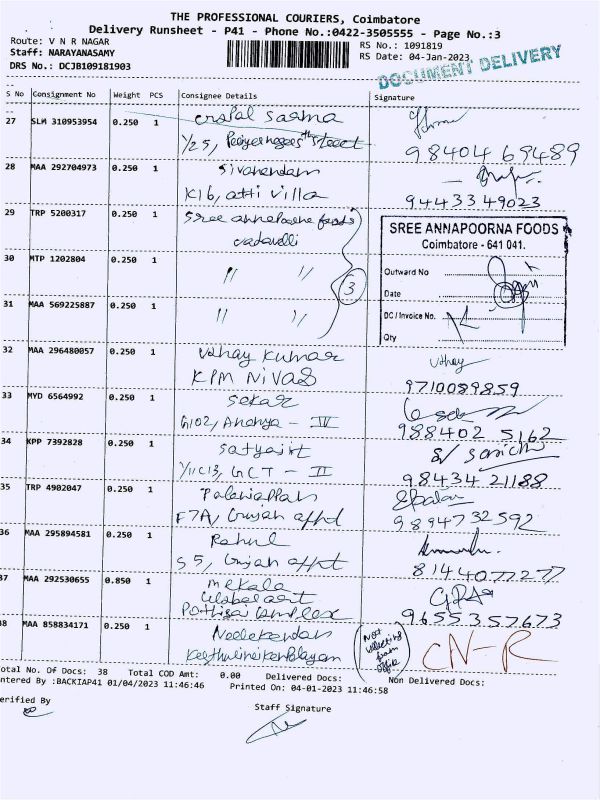 THE PROFESSIONAL COURIERS, Coimbatore
Delivery Runsheet - P41 - Phone No.:0422-3505555 - Page No.:3
Route: V N R NAGAR
RS No.: 1091819
Staff: NARAYANASAMY
RS Date: 04-Jan-2023
DRS No.: DCJB109181903
DOCUMENT DELIVERY
S No Consignment No Weight PCS Consignee Details Signature
27 SLM 310953954 0.250 1
1/25,
98404 69489
28 MAA 292704973 0.250 1 Sivanandam
K16, atti villa
94433 49023
29 TRP 5200317 0.250 1 Sree annapoorna foods
vadavalli
SREE ANNAPOORNA FOODS
Coimbatore - 641 041.
Outward No
Date
DC / Invoice No.
Qty
30 MTP 1202804 0.250 1 " "
3
31 MAA 569225887 0.250 1 " "
32 MAA 296480057 0.250 1 Vijay Kumar
KPM NIVAS
Vijay
9710089859
33 MYD 6564992 0.250 1 Sekar
G102, Ananya - IV
988402 5162
34 KPP 7392828 0.250 1
1/11C13, GCT - II
98434 21188
35 TRP 4902047 0.250 1 Palaniappan
F7A,
98947 32592
36 MAA 295894581 0.250 1 Rahul
S5,
8144077277
37 MAA 292530655 0.850 1 Mekala
Complex
9655357673
38 MAA 858834171 0.250 1
Not
from
office
CN-R
Total No. Of Docs: 38 Total COD Amt: 0.00 Delivered Docs: Non Delivered Docs:
Entered By :BACKIAP41 01/04/2023 11:46:46 Printed On: 04-01-2023 11:46:58
Verified By
Staff Signature